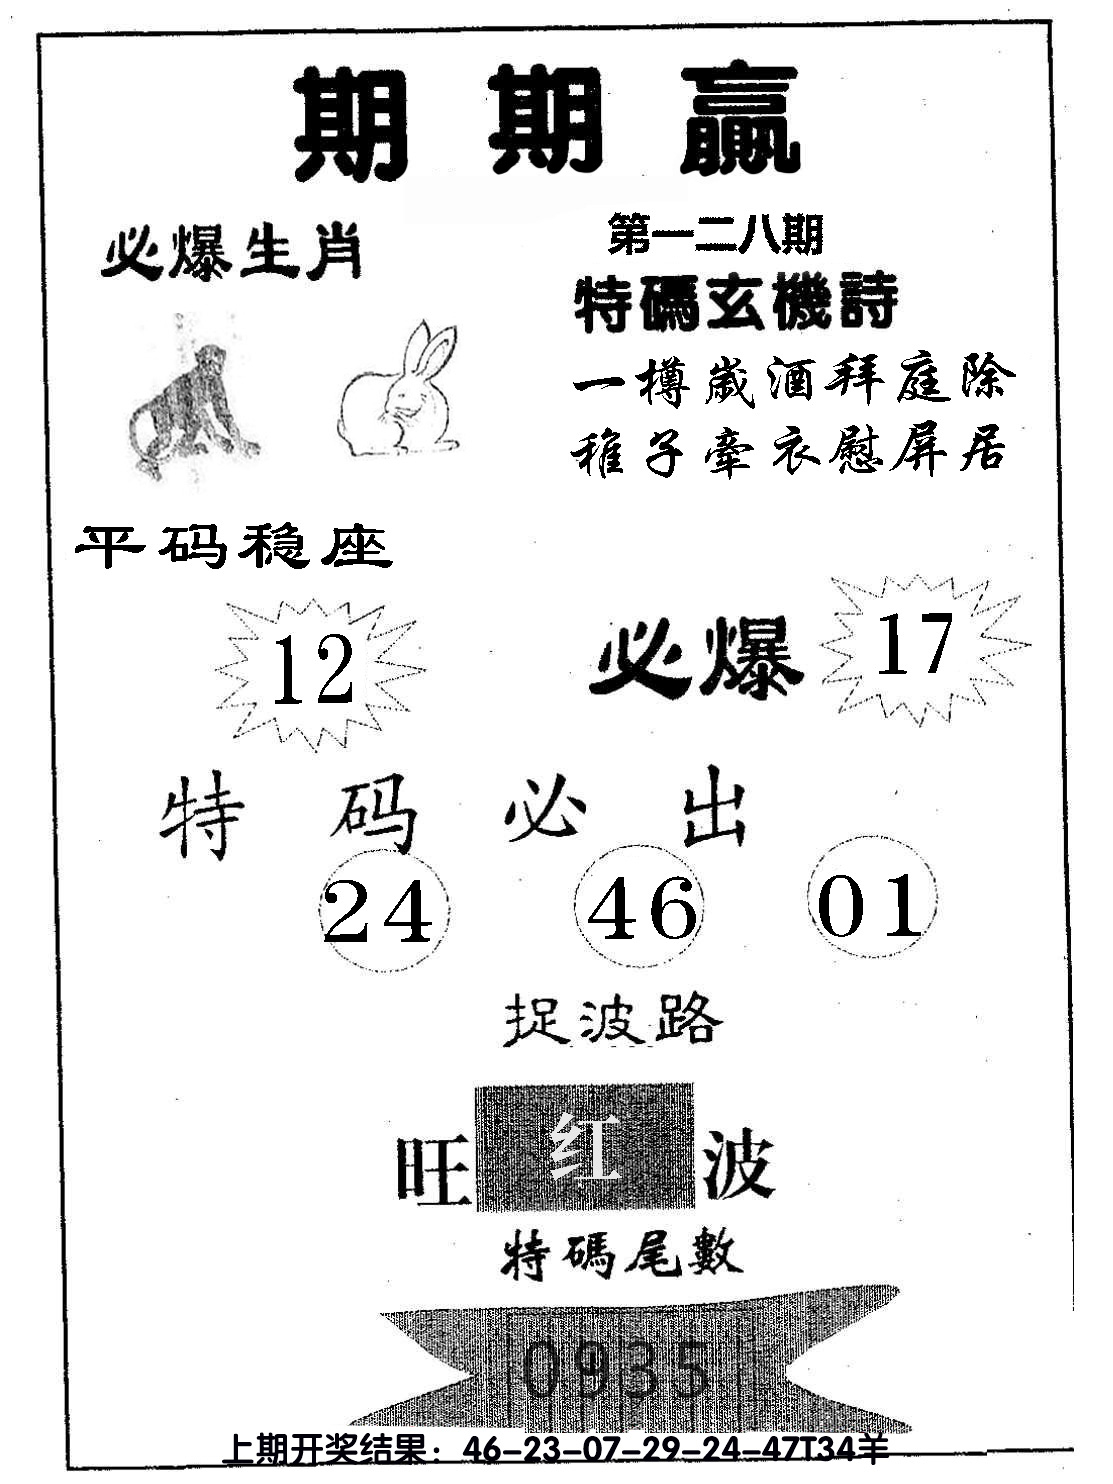 期期贏
必爆生肖
第一二八期
特碼玄機詩
一樽歲酒拜庭除
稚子牽衣慰屏居
平码稳座
12
必爆 17
特码必出
24 46 01
捉波路
旺红波
特碼尾數
0935
上期开奖结果：46-23-07-29-24-47T34羊